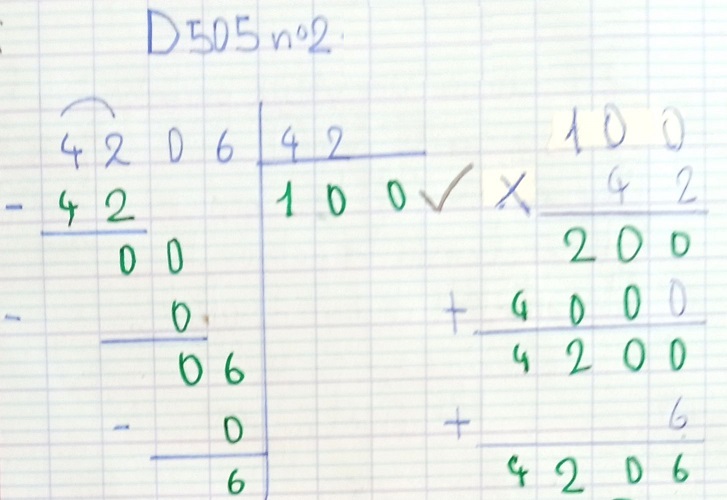 D505 n°2.
4206 | 42
- 42
100 ✓
00
- 0
06
- 0
6
100
X 42
200
+ 4000
4200
+ 6
4206